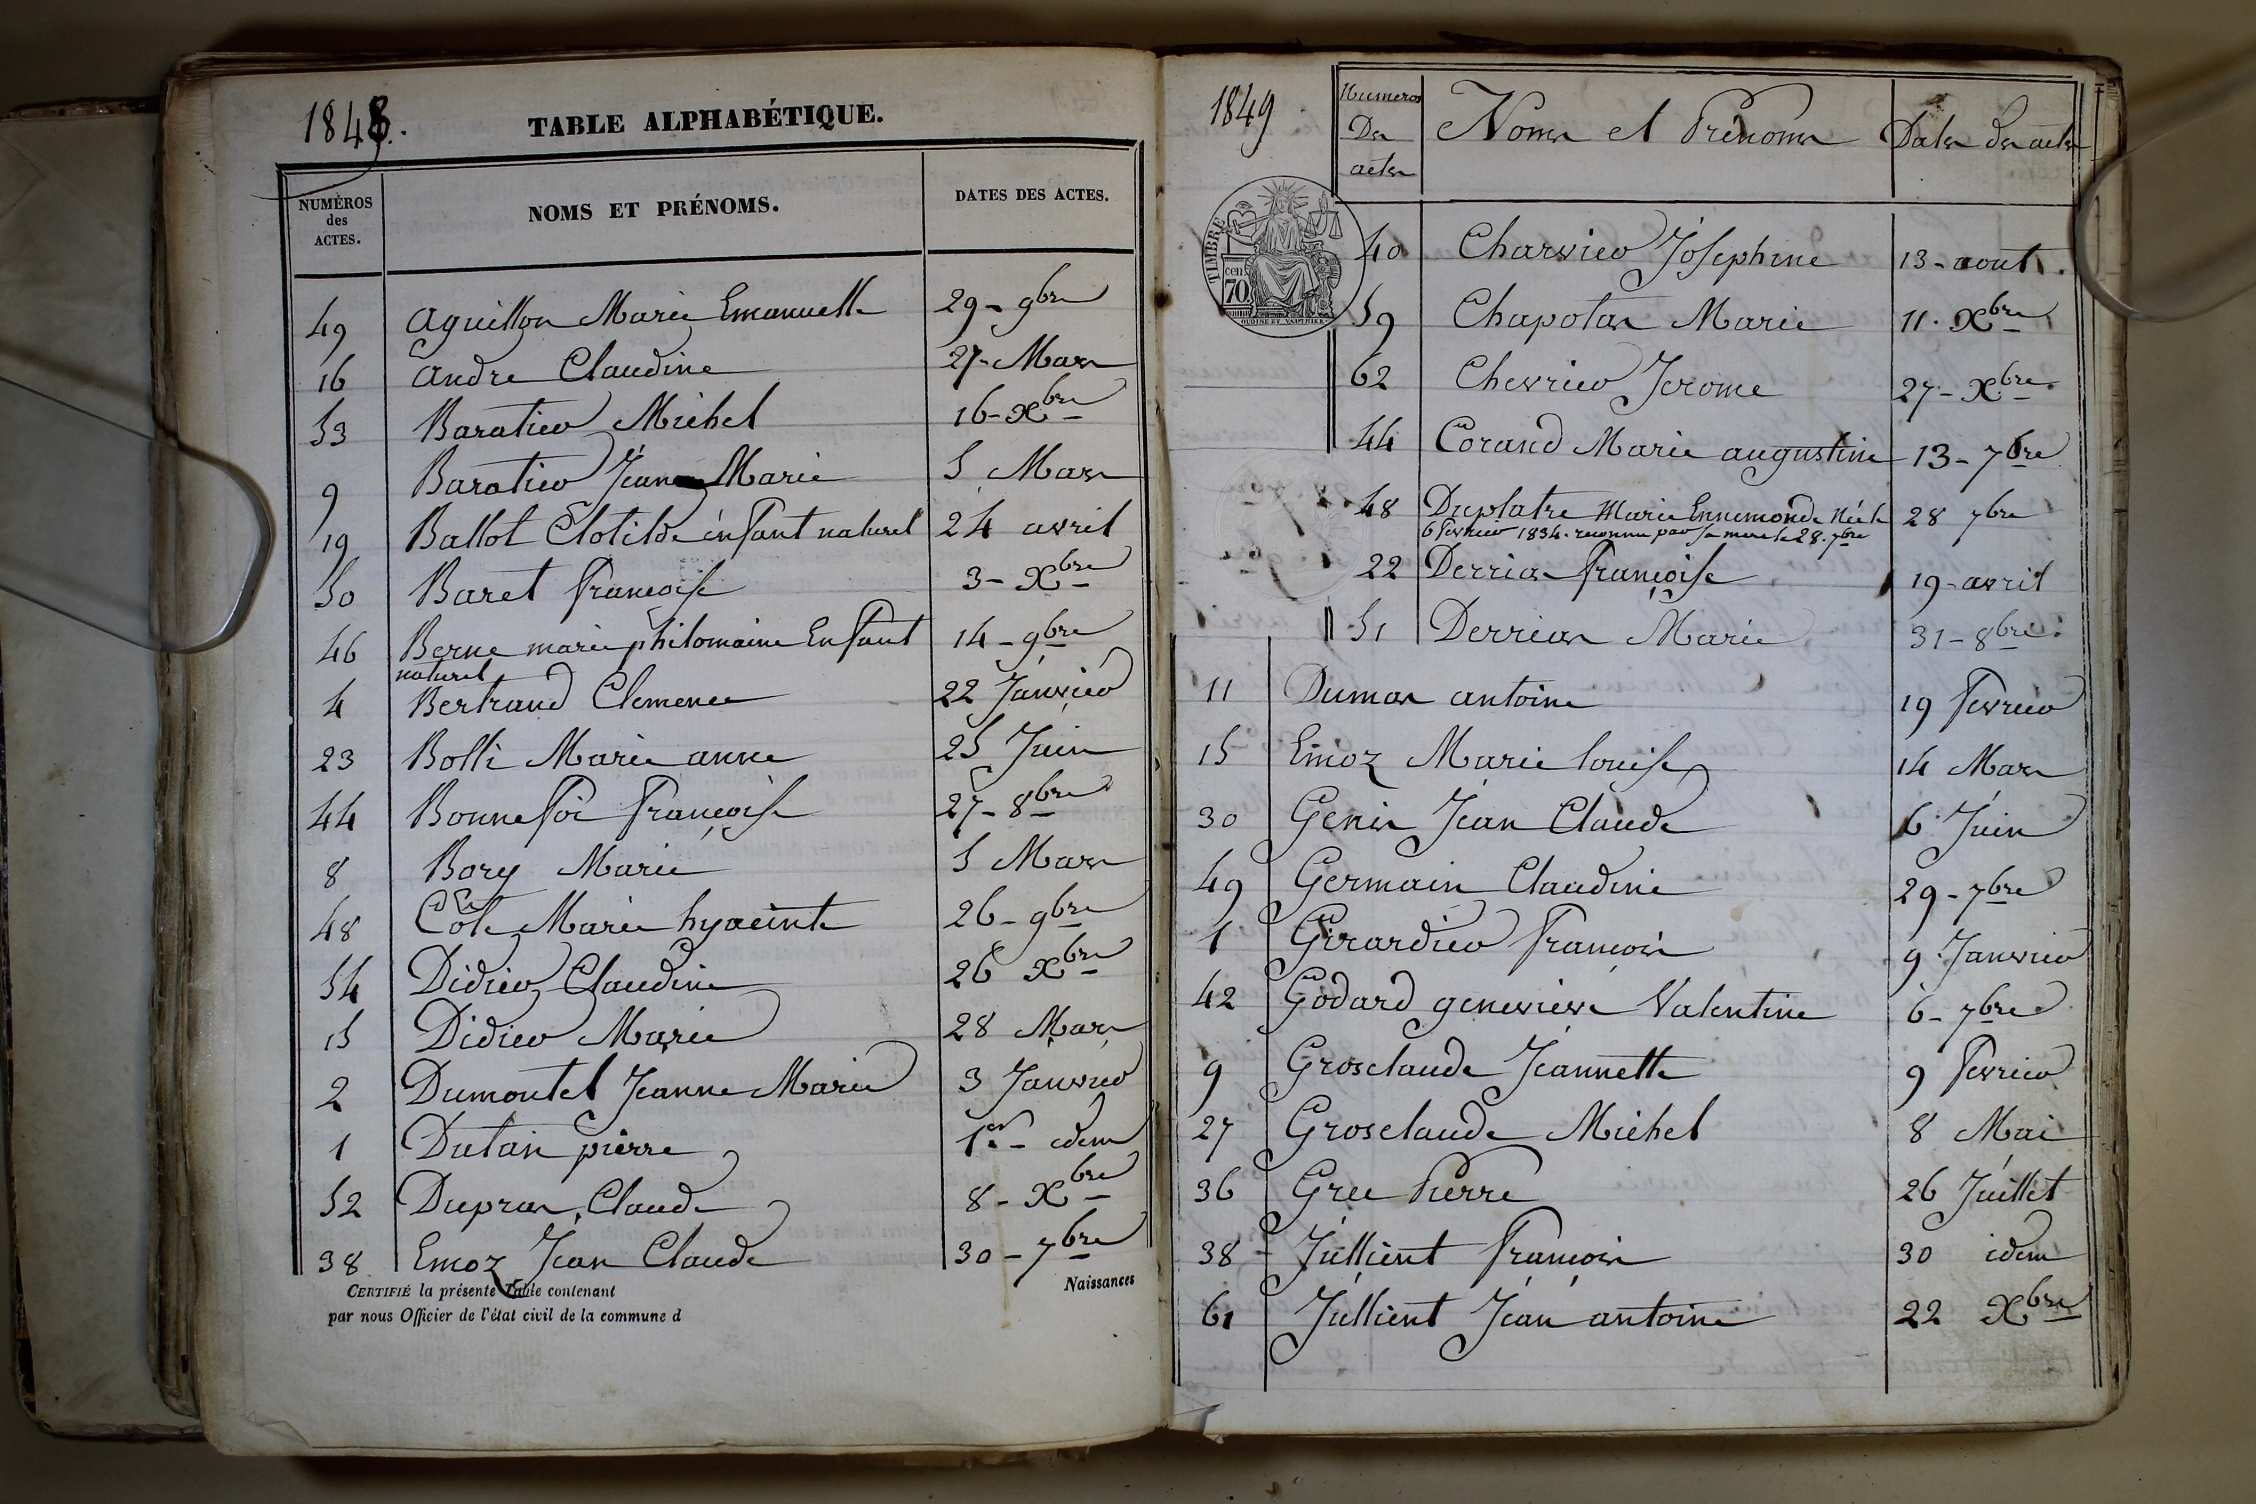 1848.
TABLE ALPHABÉTIQUE.
NUMÉROS
des
ACTES.
NOMS ET PRÉNOMS.
DATES DES ACTES.
49 aguillon Marie Emanuelle 29 - 9bre
16 andre Claudine 27 - Mars
53 Baratier Michel 16 - Xbre
9 Baratier Jean Marie 5 Mars
19 Ballot Clotilde enfant naturel 24 avril
50 Baret francoise 3 - Xbre
46 Berne marie philomaine Enfant 14 - 9bre
naturel
4 Bertrand Clemence 22 Janvier
23 Bolli Marie anne 25 Juin
44 Bonnefoi françoise 27 - 8bre
8 Bory Marie 5 Mars
48 Côte Marie hyacinte 26 - 9bre
54 Didier Claudine 26 Xbre
15 Didier Marie 28 Mars
2 Dumontel Jeanne Marie 3 Janvier
1 Dutain pierre 1er - idem
52 Dupras Claude 8 - Xbre
38 Emoz Jean Claude 30 - 7bre
CERTIFIÉ la présente Table contenant Naissances
par nous Officier de l'état civil de la commune d
1849
Numeros
Des
actes
Noms et Prénoms
Dates des actes
TIMBRE
cen
70
40 Charvier Joséphine 13 - aout.
59 Chapotas Marie 11. Xbre
62 Chevrier Jerome 27 - Xbre
44 Corand Marie augustine 13 - 7bre
48 Duplatre Marie Ennemonde Née le 28 7bre
6 fevrier 1834. reconnu par sa mere le 28. 7bre
22 Derrias françoise 19 - avril
51 Derrias Marie 31 - 8bre
11 Dumas antoine 19 fevrier
15 Emoz Marie louise 14 Mars
30 Genis Jean Claude 6 Juin
49 Germain Claudine 29 - 7bre
1 Girardier françois 9. Janvier
42 Godard genevieve Valentine 6 - 7bre
9 Grosclaude Jeannette 9 fevrier
27 Grosclaude Michel 8 Mai
36 Gree Pierre 26 Juillet
38 Jullient françois 30 idem
61 Jullient Jean antoine 22 Xbre